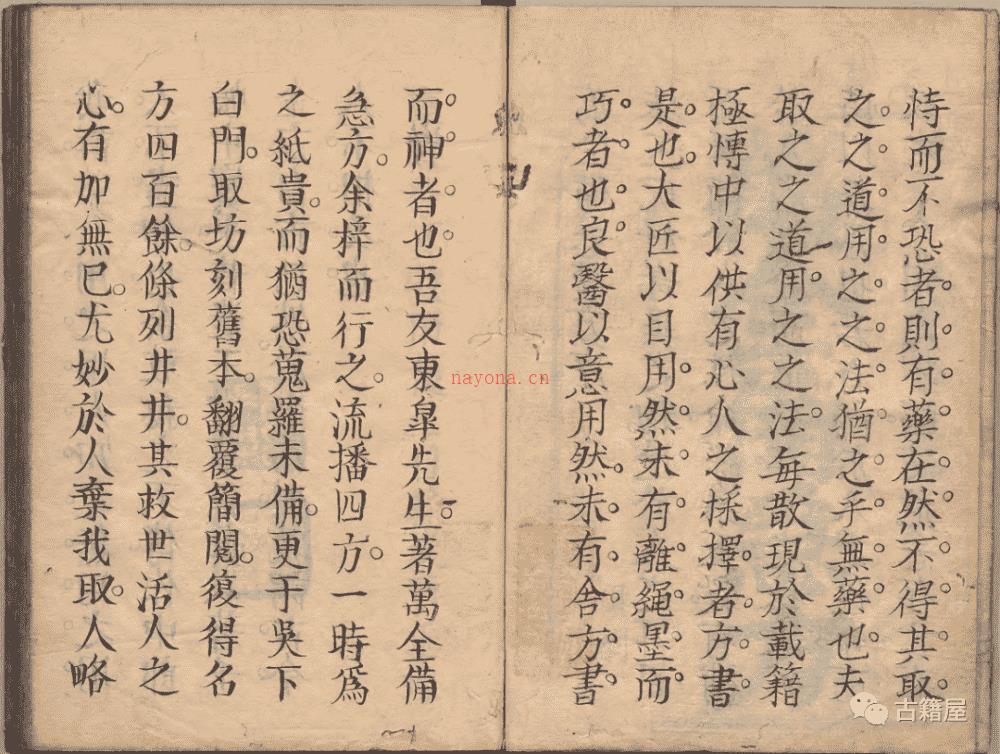 恃而不恐者則有藥在然不得其取
之之道用之之法猶之乎無藥也夫
取之之道用之之法每散現於載籍
極愽中以供有心人之採擇者方書
是也大匠以目用然未有離繩墨而
巧者也良醫以意用然未有舍方書
而神者也吾友東皐先生著萬全備
急方余梓而行之流播四方一時爲
之紙貴而猶恐蒐羅未備更于吳下
白門取坊刻舊本翻覆簡閱復得名
方四百餘條列井井其救世活人之
心有加無已尤妙於人棄我取人略
nayona.cn
古籍屋